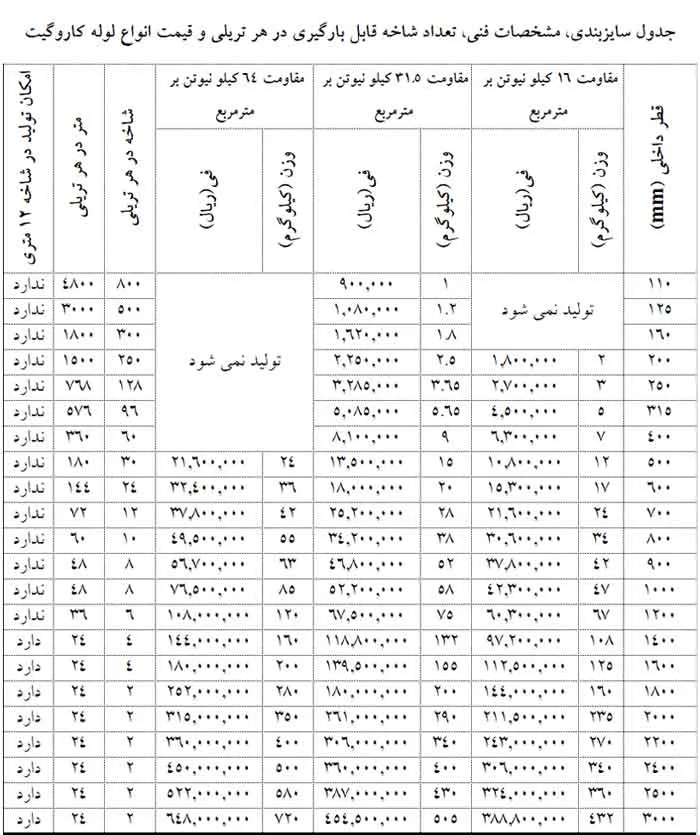 جدول سایزبندی، مشخصات فنی، تعداد شاخه قابل بارگیری در هر تریلی و قیمت انواع لوله کاروگیت
قطر داخلی (mm) مقاومت ۱۶ کیلو نیوتن بر مترمربع مقاومت ۳۱.۵ کیلو نیوتن بر مترمربع مقاومت ۶۴ کیلو نیوتن بر مترمربع شاخه در هر تریلی متر در هر تریلی امکان تولید در شاخه ۱۲ متری
وزن (کیلوگرم) فی(ریال) وزن (کیلوگرم) فی(ریال) وزن (کیلوگرم) فی(ریال)
۱۱۰ تولید نمی شود ۱ ۹۰۰,۰۰۰ تولید نمی شود ۸۰۰ ۴۸۰۰ ندارد
۱۲۵ ۱.۲ ۱,۰۸۰,۰۰۰ ۵۰۰ ۳۰۰۰ ندارد
۱۶۰ ۱.۸ ۱,۶۲۰,۰۰۰ ۳۰۰ ۱۸۰۰ ندارد
۲۰۰ ۲ ۱,۸۰۰,۰۰۰ ۲.۵ ۲,۲۵۰,۰۰۰ ۲۵۰ ۱۵۰۰ ندارد
۲۵۰ ۳ ۲,۷۰۰,۰۰۰ ۳.۶۵ ۳,۲۸۵,۰۰۰ ۱۲۸ ۷۶۸ ندارد
۳۱۵ ۵ ۴,۵۰۰,۰۰۰ ۵.۶۵ ۵,۰۸۵,۰۰۰ ۹۶ ۵۷۶ ندارد
۴۰۰ ۷ ۶,۳۰۰,۰۰۰ ۹ ۸,۱۰۰,۰۰۰ ۶۰ ۳۶۰ ندارد
۵۰۰ ۱۲ ۱۰,۸۰۰,۰۰۰ ۱۵ ۱۳,۵۰۰,۰۰۰ ۲۴ ۲۱,۶۰۰,۰۰۰ ۳۰ ۱۸۰ ندارد
۶۰۰ ۱۷ ۱۵,۳۰۰,۰۰۰ ۲۰ ۱۸,۰۰۰,۰۰۰ ۳۶ ۳۲,۴۰۰,۰۰۰ ۲۴ ۱۴۴ ندارد
۷۰۰ ۲۴ ۲۱,۶۰۰,۰۰۰ ۲۸ ۲۵,۲۰۰,۰۰۰ ۴۲ ۳۷,۸۰۰,۰۰۰ ۱۲ ۷۲ ندارد
۸۰۰ ۳۴ ۳۰,۶۰۰,۰۰۰ ۳۸ ۳۴,۲۰۰,۰۰۰ ۵۵ ۴۹,۵۰۰,۰۰۰ ۱۰ ۶۰ ندارد
۹۰۰ ۴۲ ۳۷,۸۰۰,۰۰۰ ۵۲ ۴۶,۸۰۰,۰۰۰ ۶۳ ۵۶,۷۰۰,۰۰۰ ۸ ۴۸ ندارد
۱۰۰۰ ۴۷ ۴۲,۳۰۰,۰۰۰ ۵۸ ۵۲,۲۰۰,۰۰۰ ۸۵ ۷۶,۵۰۰,۰۰۰ ۸ ۴۸ ندارد
۱۲۰۰ ۶۷ ۶۰,۳۰۰,۰۰۰ ۷۵ ۶۷,۵۰۰,۰۰۰ ۱۲۰ ۱۰۸,۰۰۰,۰۰۰ ۶ ۳۶ ندارد
۱۴۰۰ ۱۰۸ ۹۷,۲۰۰,۰۰۰ ۱۳۲ ۱۱۸,۸۰۰,۰۰۰ ۱۶۰ ۱۴۴,۰۰۰,۰۰۰ ۴ ۲۴ دارد
۱۶۰۰ ۱۲۵ ۱۱۲,۵۰۰,۰۰۰ ۱۵۵ ۱۳۹,۵۰۰,۰۰۰ ۲۰۰ ۱۸۰,۰۰۰,۰۰۰ ۴ ۲۴ دارد
۱۸۰۰ ۱۶۰ ۱۴۴,۰۰۰,۰۰۰ ۲۰۰ ۱۸۰,۰۰۰,۰۰۰ ۲۸۰ ۲۵۲,۰۰۰,۰۰۰ ۲ ۲۴ دارد
۲۰۰۰ ۲۳۵ ۲۱۱,۵۰۰,۰۰۰ ۲۹۰ ۲۶۱,۰۰۰,۰۰۰ ۳۵۰ ۳۱۵,۰۰۰,۰۰۰ ۲ ۲۴ دارد
۲۲۰۰ ۲۷۰ ۲۴۳,۰۰۰,۰۰۰ ۳۴۰ ۳۰۶,۰۰۰,۰۰۰ ۴۰۰ ۳۶۰,۰۰۰,۰۰۰ ۲ ۲۴ دارد
۲۴۰۰ ۳۴۰ ۳۰۶,۰۰۰,۰۰۰ ۴۰۰ ۳۶۰,۰۰۰,۰۰۰ ۵۰۰ ۴۵۰,۰۰۰,۰۰۰ ۲ ۲۴ دارد
۲۵۰۰ ۳۶۰ ۳۲۴,۰۰۰,۰۰۰ ۴۳۰ ۳۸۷,۰۰۰,۰۰۰ ۵۸۰ ۵۲۲,۰۰۰,۰۰۰ ۲ ۲۴ دارد
۳۰۰۰ ۴۳۲ ۳۸۸,۸۰۰,۰۰۰ ۵۰۵ ۴۵۴,۵۰۰,۰۰۰ ۷۲۰ ۶۴۸,۰۰۰,۰۰۰ ۲ ۲۴ دارد